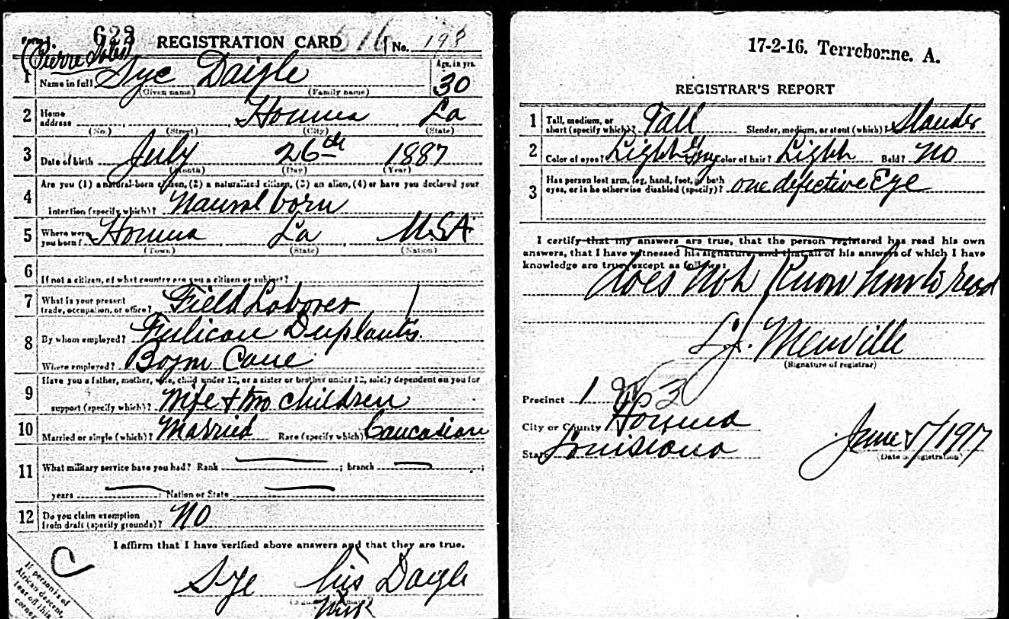 623 REGISTRATION CARD No. 198
(Pierre
1 Name in full Sye Daigle Age, in yrs. 30
(Given name) (Family name)
2 Home address Houma La
(No.) (Street) (City) (State)
3 Date of birth July 26th 1887
(Month) (Day) (Year)
4 Are you (1) a natural-born citizen, (2) a naturalized citizen, (3) an alien, (4) or have you declared your
intention (specify which)? Naural born
5 Where were you born? Houma La USA
(Town) (State) (Nation)
6 If not a citizen, of what country are you a citizen or subject?
7 What is your present trade, occupation, or office? Field Laborer
8 By whom employed? Duplantis
Where employed? Cane
9 Have you a father, mother, wife, child under 12, or a sister or brother under 12, solely dependent on you for
support (specify which)? Wife + two children
10 Married or single (which)? Married Race (specify which)? Caucasian
11 What military service have you had? Rank ; branch ;
years ; Nation or State
12 Do you claim exemption from draft (specify grounds)? No
I affirm that I have verified above answers and that they are true.
Sye his Daigle
If person is of African descent, tear off this corner
17-2-16. Terrebonne, A.
REGISTRAR'S REPORT
1 Tall, medium, or short (specify which)? Tall Slender, medium, or stout (which)? Slander
2 Color of eyes? Light Gray Color of hair? Light Bald? No
3 Has person lost arm, leg, hand, foot, or both eyes, or is he otherwise disabled (specify)? one defective Eye
I certify that my answers are true, that the person registered has read his own
answers, that I have witnessed his signature, and that all of his answers of which I have
knowledge are true, except as follows:
does not know how to read
L.J. Menville
(Signature of registrar)
Precinct 1
City or County Houma
State Louisiana
June 5/1917
(Date of registration)